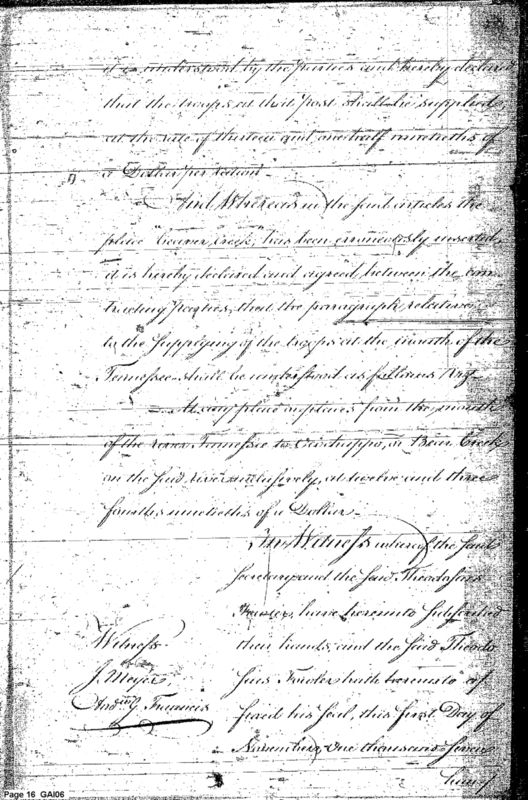 it is understood by the parties and hereby declared
that the troops at that Post shall be supplied
at the rate of thirteen and one half ninetieths of
a Dollar per ration.
And Whereas in the said articles the
place "beaver Creek", has been erroneously inserted,
it is hereby declared and agreed between the con
tracting parties, that the paragraph relative
to the supplying of the troops at the mouth of the
Tennessee shall be understood as follows Vizt.
At any place or places from the mouth
of the river Tennessee to or Bear Creek
on the said river inclusively, at twelve and three
fourths ninetieths of a Dollar.
In Witness whereof the said
Secretary and the said Theodosius
Fowler, have hereunto subscribed
their hands, and the said Theodo
sius Fowler hath hereunto af
fixed his seal, this first Day of
November, One thousand seven
hund
Witness
J. Meyer
And. G. Fraunces
Page 16 GAI06